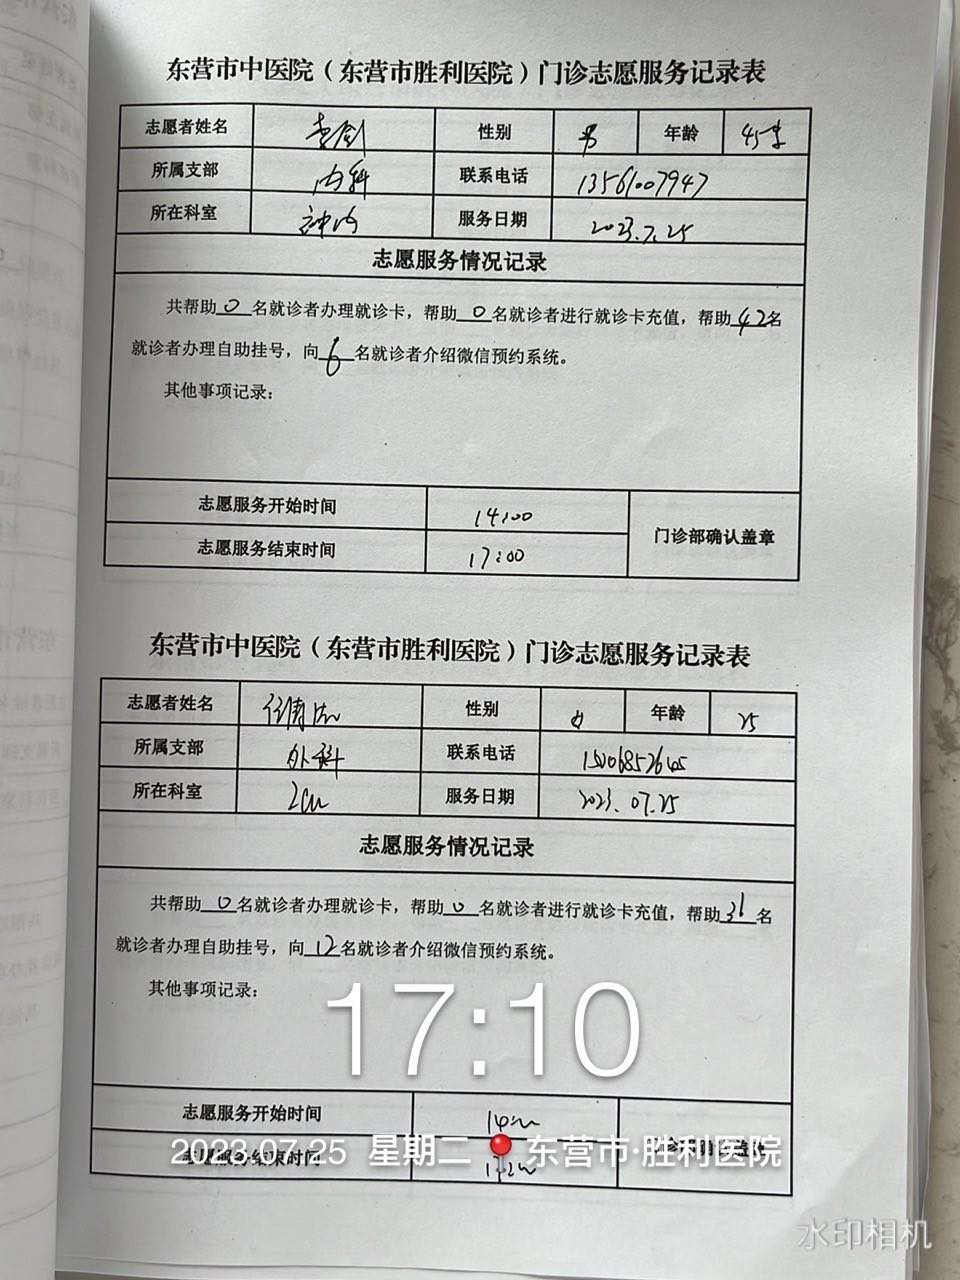 东营市中医院（东营市胜利医院）门诊志愿服务记录表
志愿者姓名 性别 男 年龄 45岁
所属支部 内科 联系电话 13561007947
所在科室 神内 服务日期 2023.7.25
志愿服务情况记录
共帮助0名就诊者办理就诊卡，帮助0名就诊者进行就诊卡充值，帮助42名
就诊者办理自助挂号，向6名就诊者介绍微信预约系统。
其他事项记录：
志愿服务开始时间 14:00
门诊部确认盖章
志愿服务结束时间 17:00
东营市中医院（东营市胜利医院）门诊志愿服务记录表
志愿者姓名 性别 女 年龄 25
所属支部 外科 联系电话
所在科室 服务日期 2023.07.25
志愿服务情况记录
共帮助0名就诊者办理就诊卡，帮助0名就诊者进行就诊卡充值，帮助31名
就诊者办理自助挂号，向12名就诊者介绍微信预约系统。
其他事项记录：
17:10
志愿服务开始时间
2023.07.25 星期二 东营市·胜利医院
志愿服务结束时间
水印相机